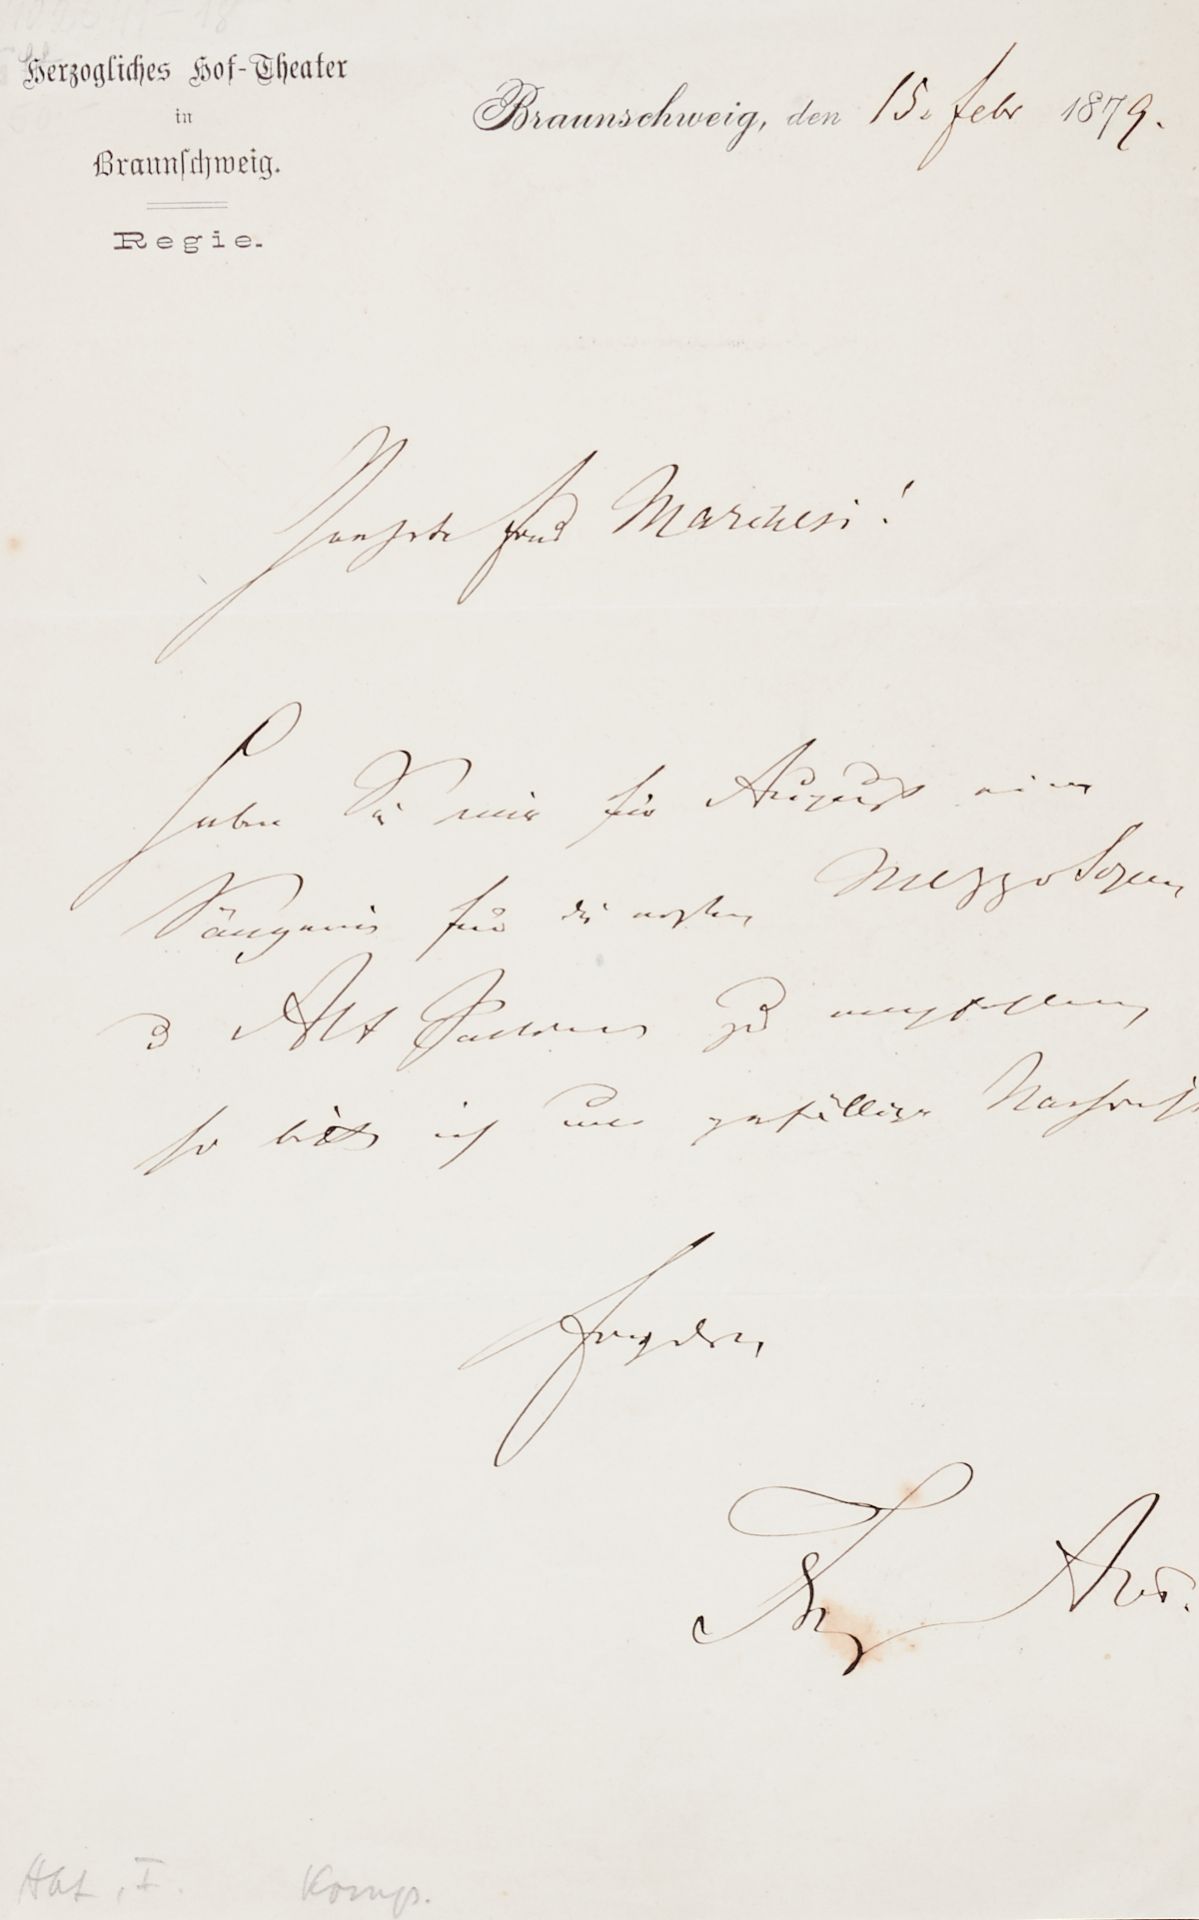 Herzogliches Hof-Theater
in
Braunschweig.
Regie.
Braunschweig, den 15. Febr 1879.
Geehrte Frau Marchesi!
Haben Sie mir für August eine
Sängerin für die ersten Mezzo Sopran
u Alt Partien zu empfehlen,
so bitte ich um gefällige Nachricht
Ergebenst,
Frz Abt.
Abt, F. Komp.